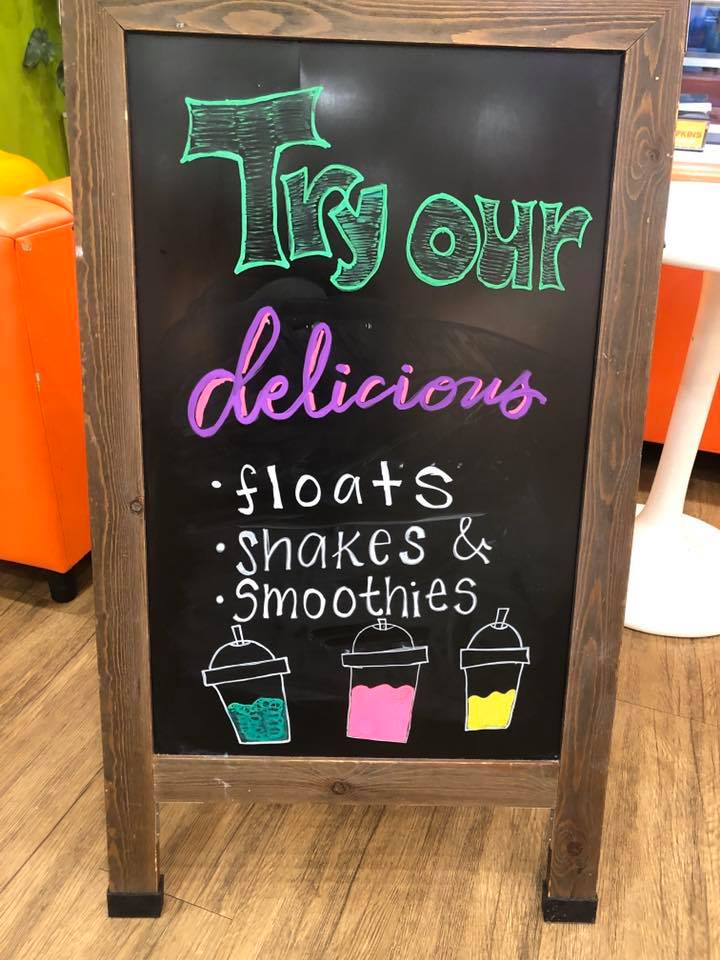 Try our
delicious
• floats
• shakes &
• smoothies